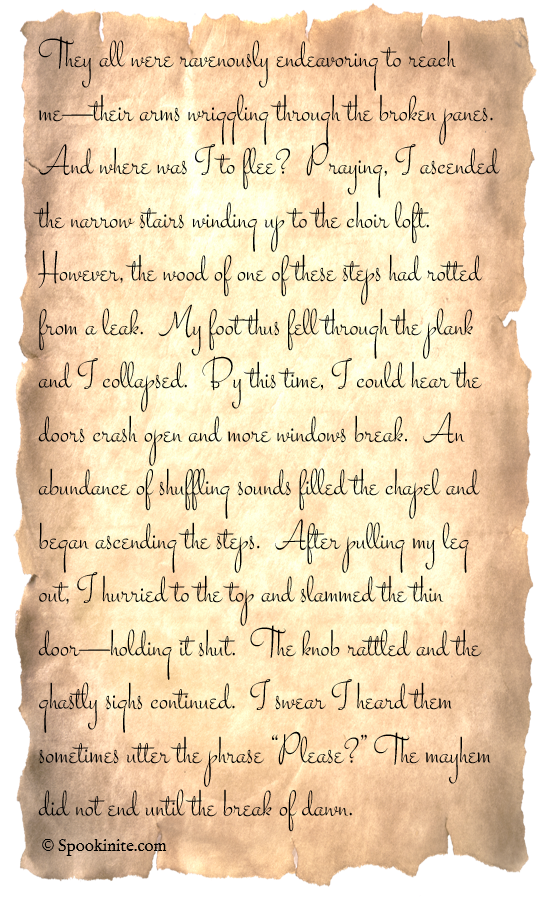 They all were ravenously endeavoring to reach
me—their arms wriggling through the broken panes.
And where was I to flee?  Praying, I ascended
the narrow stairs winding up to the choir loft.
However, the wood of one of these steps had rotted
from a leak.  My foot thus fell through the plank
and I collapsed.  By this time, I could hear the
doors crash open and more windows break.  An
abundance of shuffling sounds filled the chapel and
began ascending the steps.  After pulling my leg
out, I hurried to the top and slammed the thin
door—holding it shut.  The knob rattled and the
ghastly sighs continued.  I swear I heard them
sometimes utter the phrase “Please?”  The mayhem
did not end until the break of dawn.
© Spookinite.com